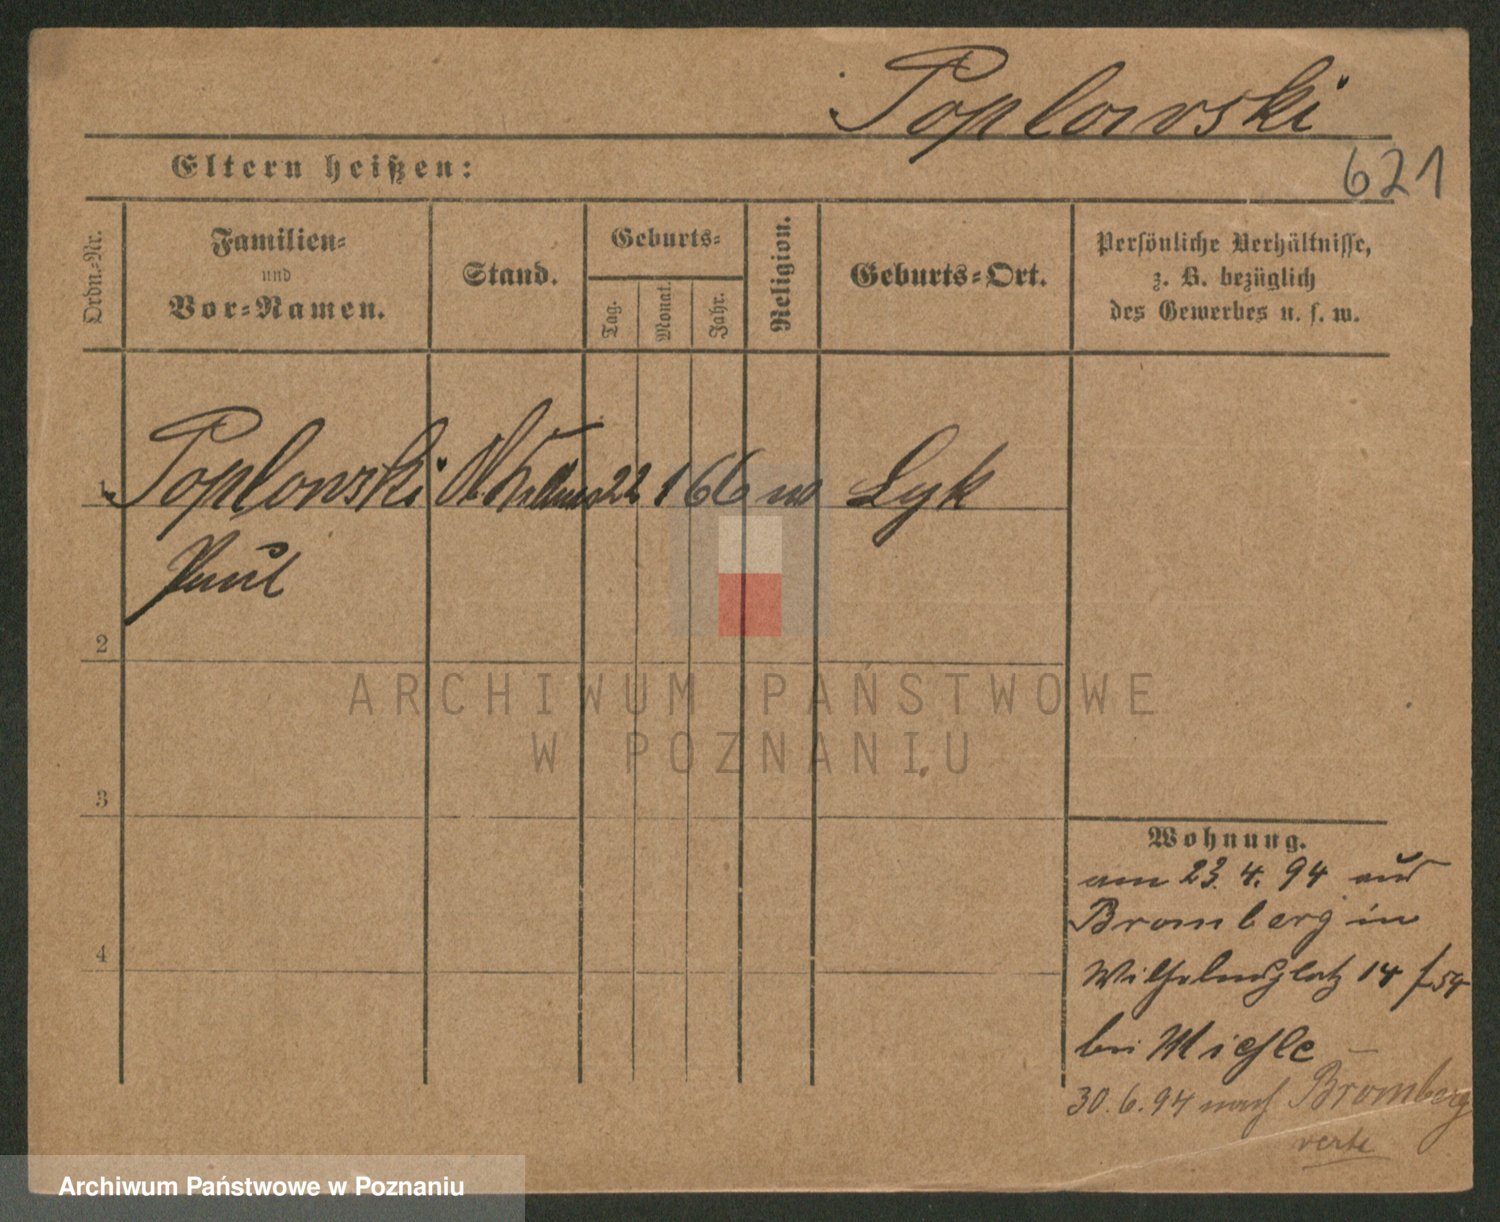 Poplowski
621
Eltern heißen:
Ordn.-Nr.
Familien-
und
Vor-Namen.
Stand.
Geburts-
Tag.
Monat.
Jahr.
Religion.
Geburts-Ort.
Persönliche Verhältnisse,
z. B. bezüglich
des Gewerbes u. s. w.
1 Poplowski 22 1 66 Lyk
Paul
2
3
4
ARCHIWUM PAŃSTWOWE
W POZNANIU
Wohnung.
am 23. 4. 94 aus
Bromberg in
Wilhelmsplatz 14
bei Miehle
30. 6. 94 nach Bromberg
verte
Archiwum Państwowe w Poznaniu